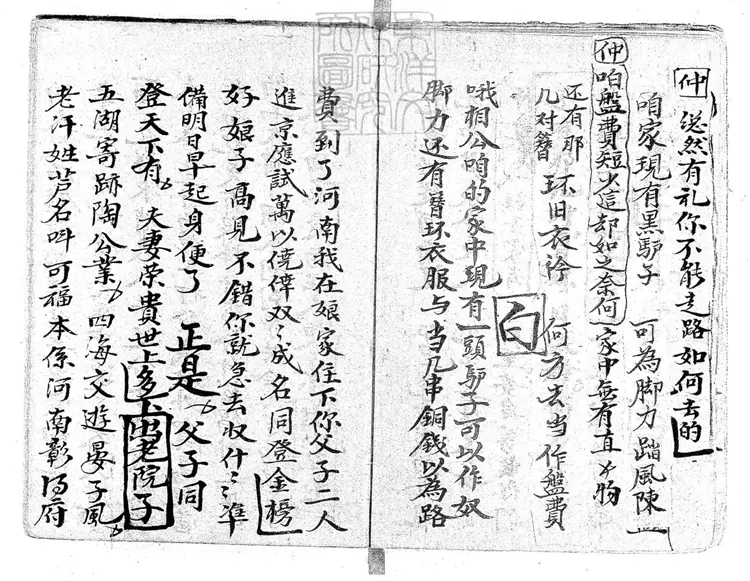 仲 縂然有礼你不能走路如何去的
咱家現有黑馿子 可為脚力踏風陳
仲 咱盤費短少這却如之奈何 家中無有直物
还有那几对簪 环旧衣衿 何方去当作盤費
白
哦相公咱的家中現有一頭馿子可以作奴
脚力还有簪环衣服与当几串銅錢以為路
費到了河南我在娘家住下你父子二人
進京應試萬以僥倖双〻成名同登金榜
好娘子高見不錯你就急去収什〻准
備明日早起身便了 正是 父子同
登天下有 夫妻荣貴世上多 下 出老院子
五湖寄跡陶公業 四海交遊晏子風
老汗姓芦名呌可福本係河南彰得府